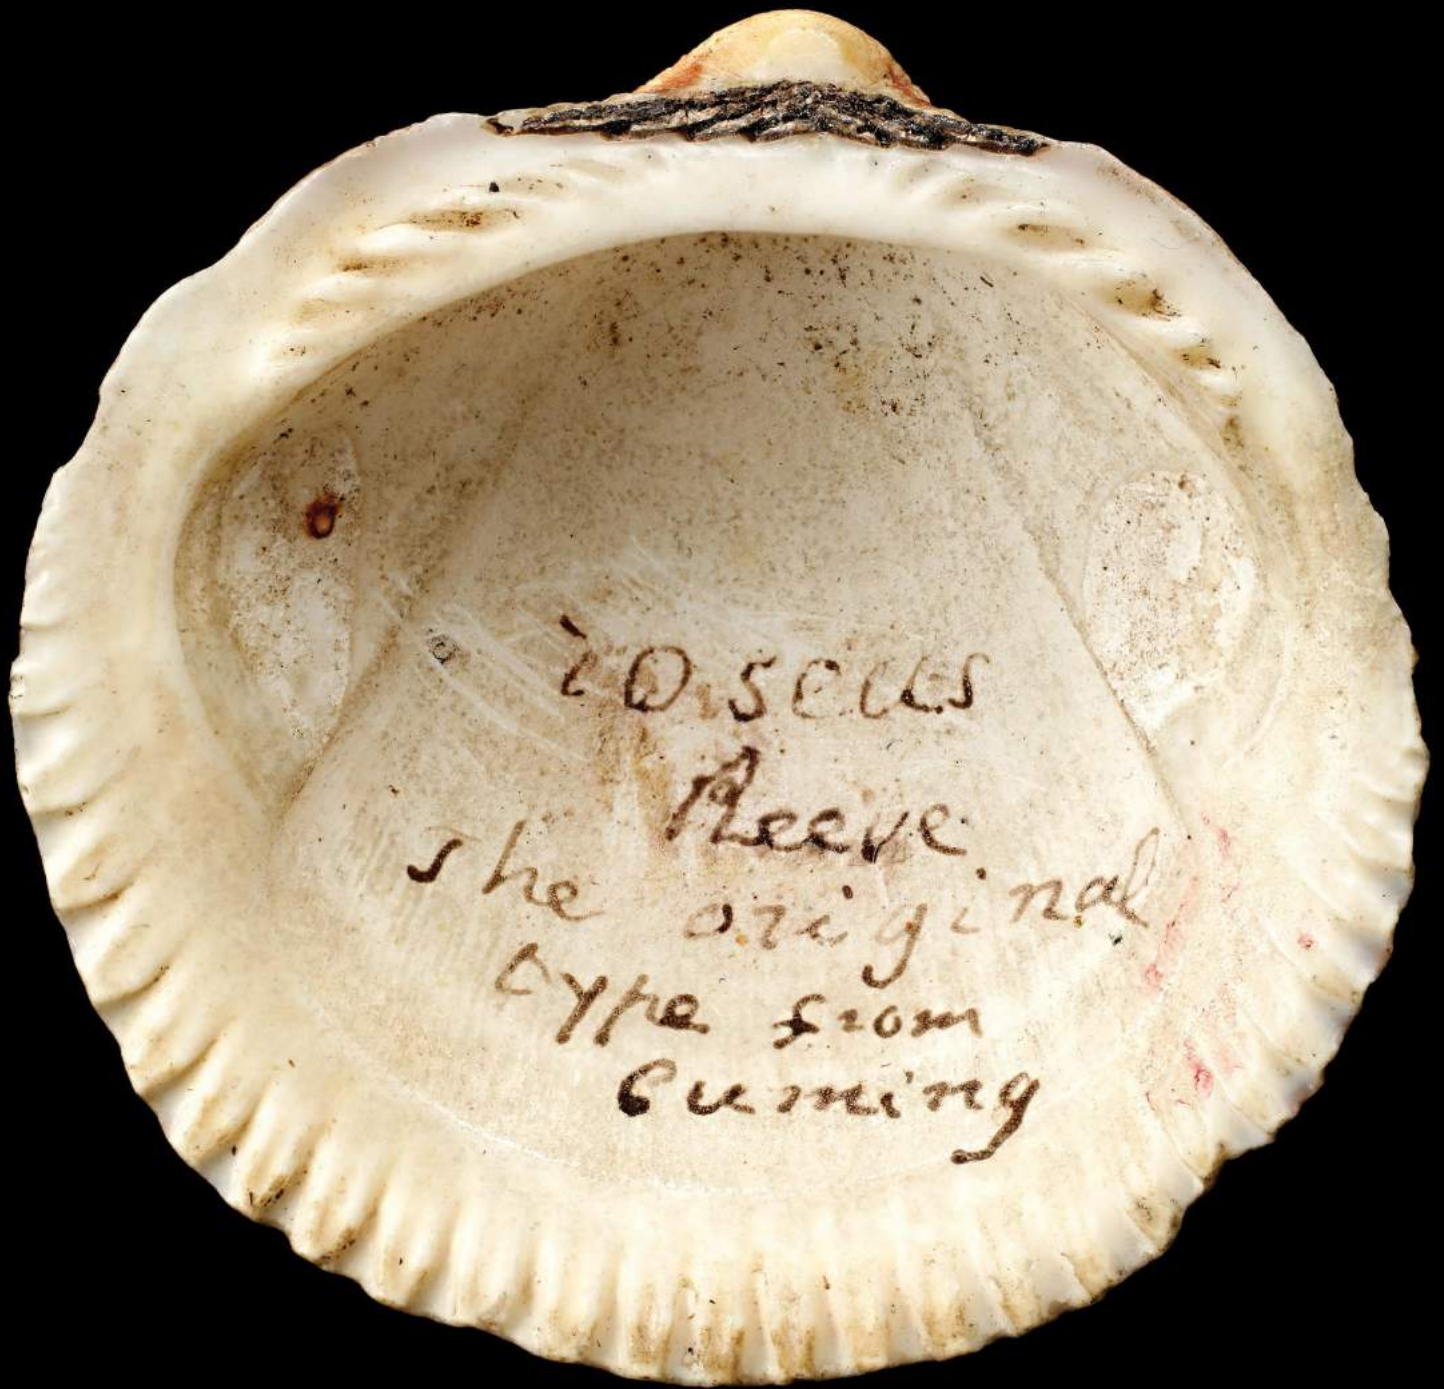 roseus
Reeve
The original
type from
Cuming